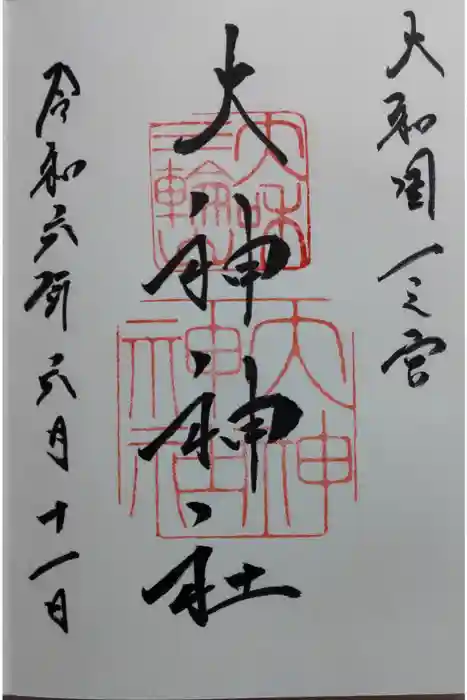 大和国一之宮
大神神社
令和六年六月十一日
大神
神社